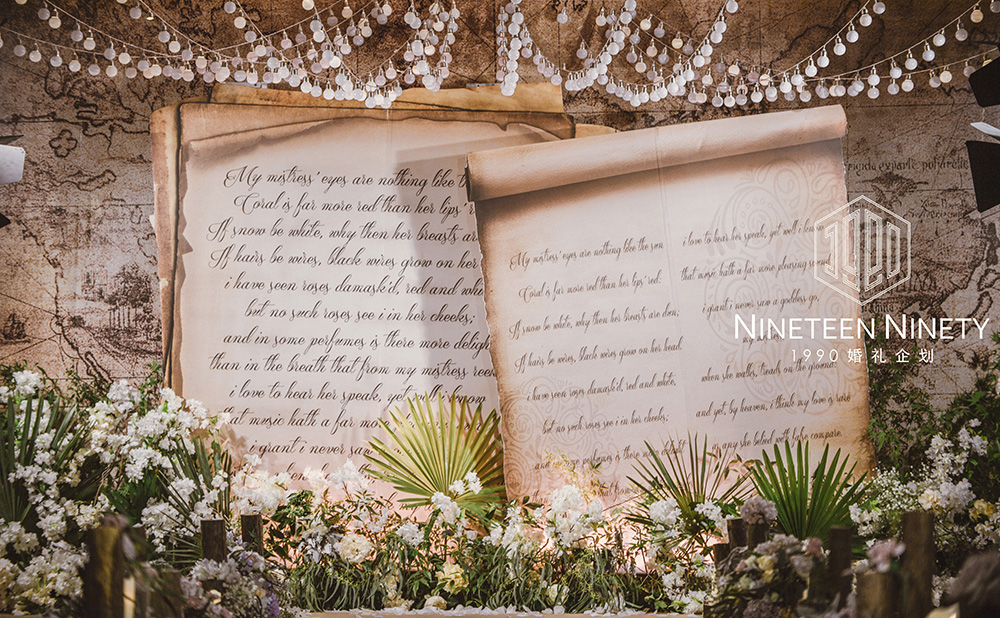 My mistress' eyes are nothing like t
Coral is far more red than her lips' r
If snow be white, why then her breasts ar
If hairs be wires, black wires grow on her
i have seen roses damask'd, red and whi
but no such roses see i in her cheeks;
and in some perfumes is there more deligh
than in the breath that from my mistress reek
i love to hear her speak, yet well i know
that music hath a far more
i grant i never saw
when
My mistress' eyes are nothing like the sun
Coral is far more red than her lips' red:
If snow be white, why then her breasts are dun;
If hairs be wires, black wires grow on her head.
i have seen roses damask'd, red and white,
but no such roses see i in her cheeks;
and in some perfumes is there more delight
i love to hear her speak, yet well i know
that music hath a far more pleasing sound
i grant i never saw a goddess go,
when she walks, treads on the ground:
and yet, by heaven, i think my love as rare
as any she belied with false compare.
NINETEEN NINETY
1990婚礼企划